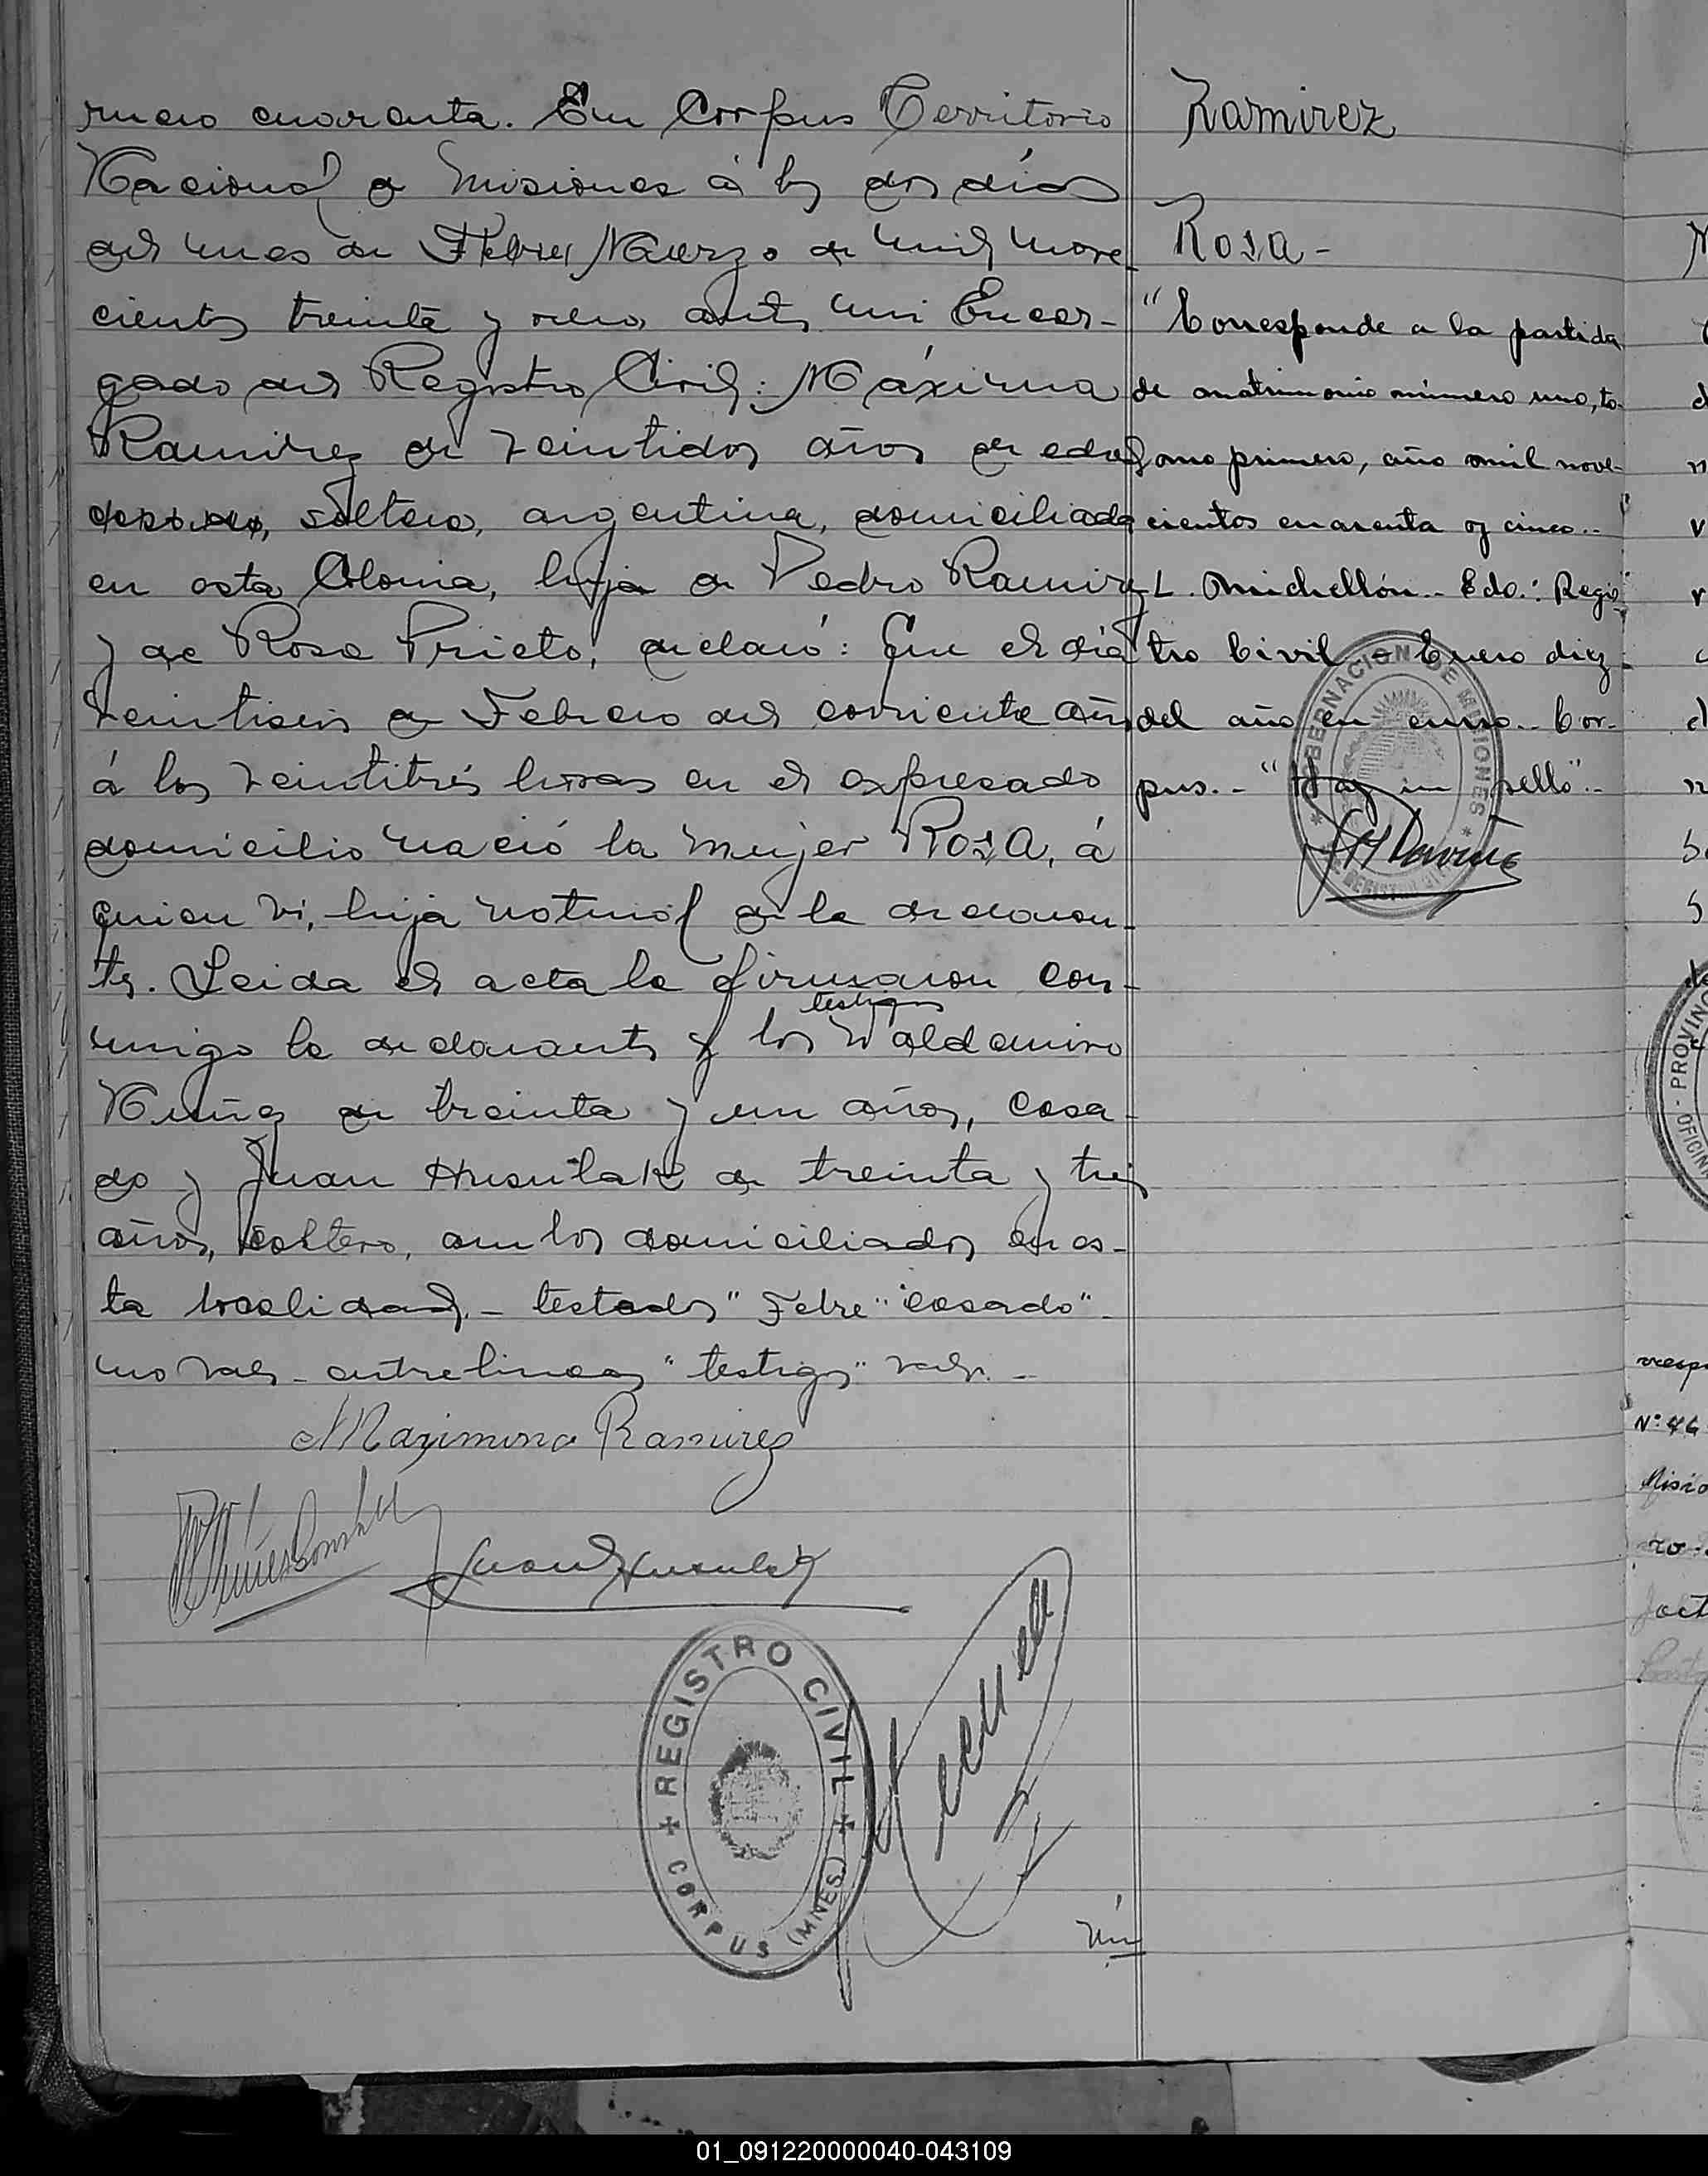 mero cuarenta. En Corpus Territorio
Nacional de Misiones á los dos días
del mes de Febre Marzo de mil nove-
cientos treinta y ante mi Encar-
gado del Registro Civil: Máxima
Ramirez de veintidos años de edad
soltera, argentina, domiciliada
en esta Colonia, hija de Pedro Ramirez
y de Rosa Prieto, declaró: Que el día
veintiseis de Febrero del corriente año
á las veintitrés horas en el expresado
domicilio nació la mujer ROSA, á
quien vi, hija natural de la declaran-
te. Leida el acta la firmaron con-
testigos
migo la declarante y los Waldamiro
Nuñez de treinta y un años, casa-
do y Juan Husulak de treinta y tres
años, soltero, ambos domiciliados en es-
ta localidad.- testados "Febre" "casado"-
no vale - entrelineas "testigos" vale.-
Maximina Ramirez
Juan Husulak
REGISTRO CIVIL
CORPUS (MNES.)
Ramirez
Rosa-
"Corresponde a la partida
de matrimonio número uno, to-
omo primero, año mil nove-
cientos cuarenta y cinco.-
L. Michellón.- Edo.: Regis-
tro Civil - Enero diez
del año en curso.- Cor-
pus.- "Hay un sello".-
GOBERNACION DE MISIONES
N° 46
- PROVINC
OFICIN